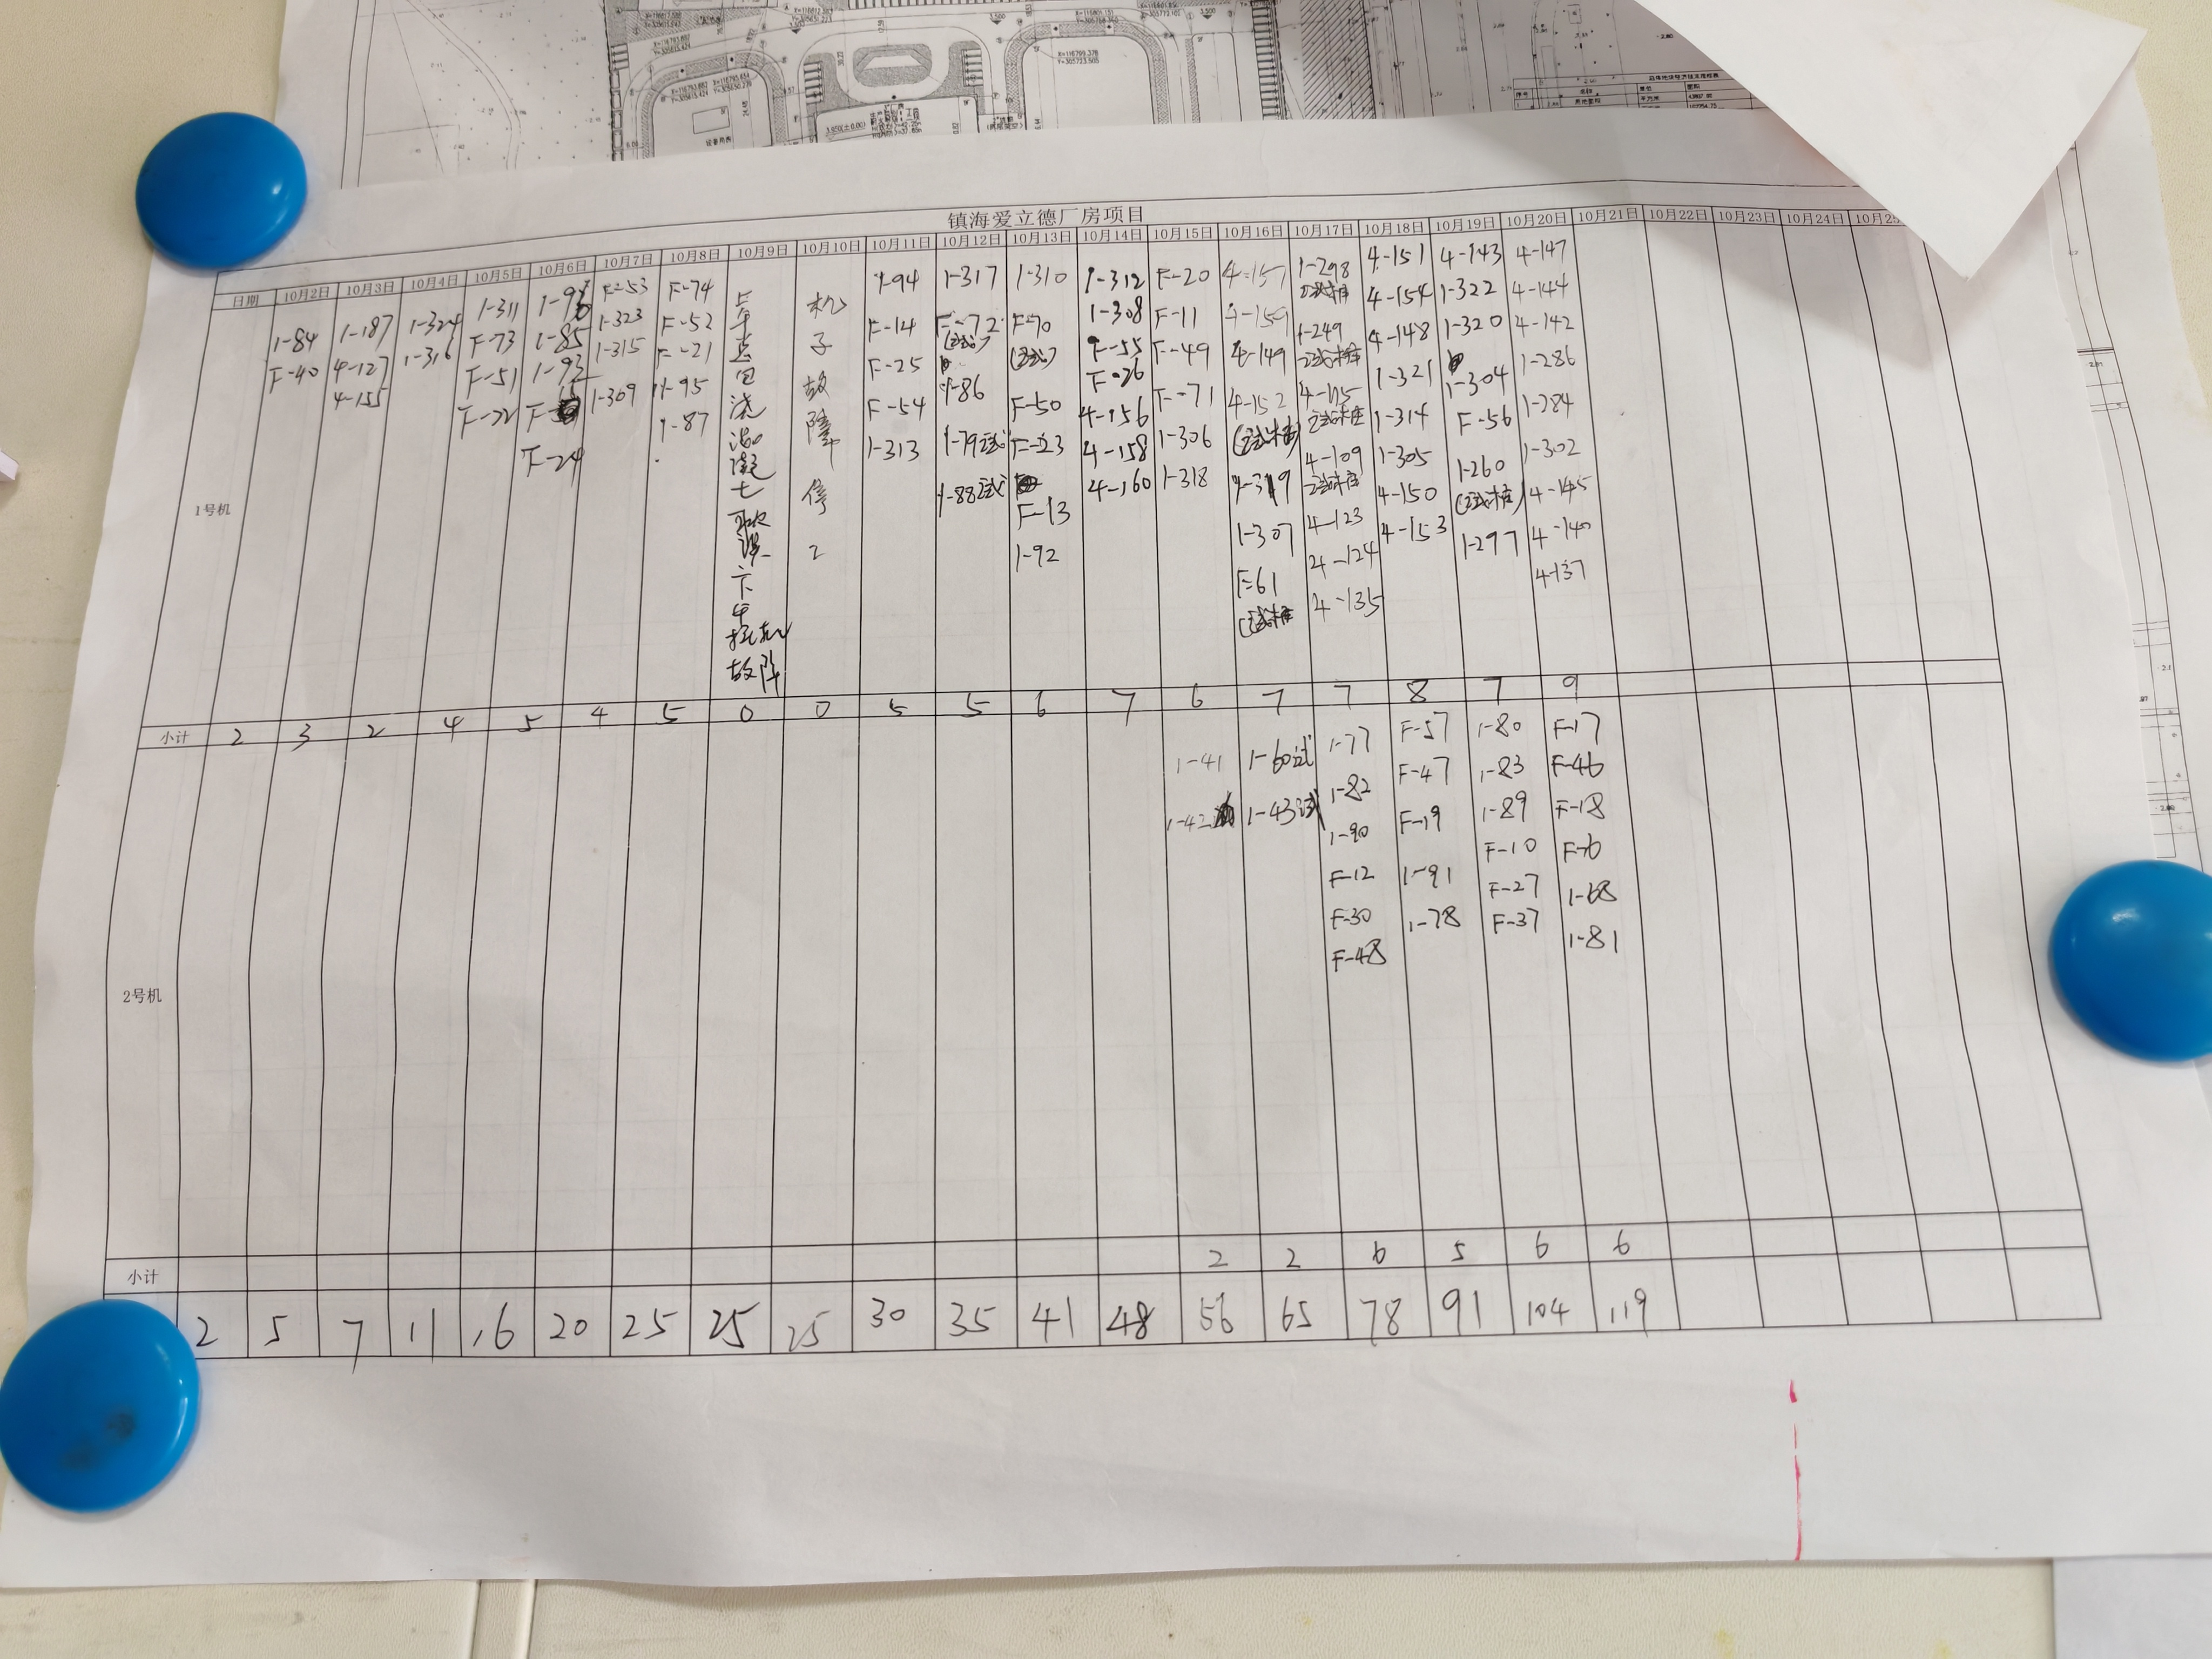 镇海爱立德厂房项目
日期 10月2日 10月3日 10月4日 10月5日 10月6日 10月7日 10月8日 10月9日 10月10日 10月11日 10月12日 10月13日 10月14日 10月15日 10月16日 10月17日 10月18日 10月19日 10月20日 10月21日 10月22日 10月23日 10月24日
1号机
1-84
F-40
1-187
4-127
4-155
1-324
1-316
1-311
F-73
F-51
F-22
1-85
1-93
F-24
F-53
1-323
1-315
1-309
F-74
F-52
F-21
1-95
1-87
故障
机
子
故
障
停
2
1-94
F-14
F-25
F-54
1-313
1-317
F-72
1-86
1-79试
1-88试
1-310
F-70
F-50
F-23
F-13
1-92
1-312
1-308
F-55
F-26
4-156
4-158
4-160
F-20
F-11
F-49
F-71
1-306
1-318
4-157
4-159
4-149
4-152
(试桩)
1-319
1-307
F-61
(试桩
1-298
试桩
1-249
试桩
4-115
试桩
4-109
试桩
4-123
4-124
4-135
4-151
4-154
4-148
1-321
1-314
1-305
4-150
4-153
4-143
1-322
1-320
1-304
F-56
1-260
(试桩)
1-297
4-147
4-144
4-142
1-286
1-284
1-302
4-145
4-140
4-137
小计 2 3 2 4 5 4 5 0 0 5 5 6 7 6 7 7 8 7 9
2号机
1-41
1-42
1-60试
1-43试
1-77
1-82
1-90
F-12
F-30
F-48
F-57
F-47
F-19
1-91
1-78
1-80
1-83
1-89
F-10
F-27
F-37
F-17
F-46
F-18
F-6
1-68
1-81
小计 2 2 6 5 6 6
2 5 7 11 16 20 25 25 25 30 35 41 48 56 65 78 91 104 119